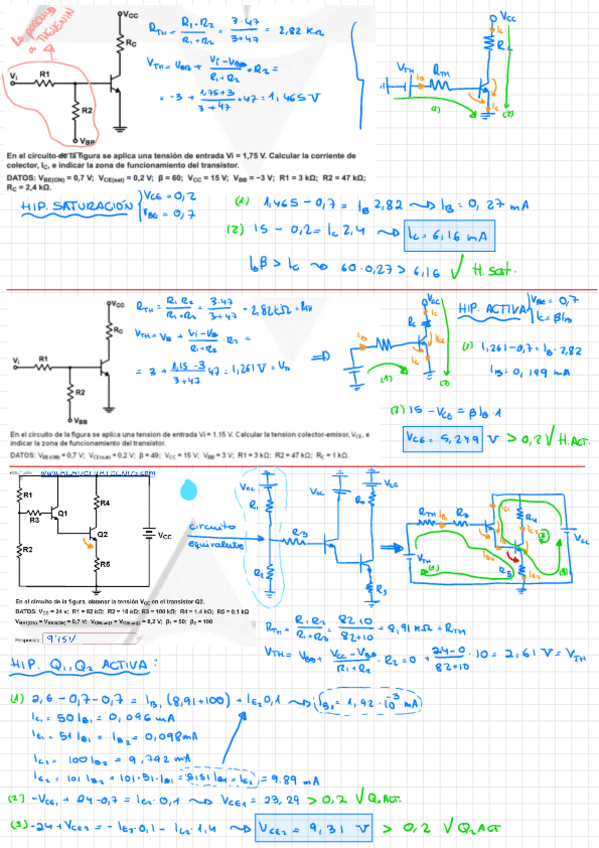 Lo pasamos
a THEVENIN
VCC
RC
Vi
R1
R2
VBB
RTH = R1·R2 / R1+R2 = 3·47 / 3+47 = 2,82 KΩ
VTH = VBB + Vi-VBB / R1+R2 · R2 =
= -3 + 1,75+3 / 3+47 · 47 = 1,465 V
VCC
IC
RC
VTH
IB
RTH
(1)
(2)
En el circuito de la figura se aplica una tensión de entrada Vi = 1,75 V. Calcular la corriente de
colector, IC, e indicar la zona de funcionamiento del transistor.
DATOS: VBE(ON) = 0,7 V; VCE(sat) = 0,2 V; β = 60; VCC = 15 V; VBB = −3 V; R1 = 3 kΩ; R2 = 47 kΩ;
RC = 2,4 kΩ.
HIP. SATURACIÓN
VCE = 0,2
VBE = 0,7
(1) 1,465 - 0,7 = IB 2,82 ⇝ IB = 0,27 mA
(2) 15 - 0,2 = IC 2,4 ⇝ IC = 6,16 mA
IB β > IC ⇝ 60·0,27 > 6,16 √ H. sat.
VCC
RC
Vi
R1
R2
VBB
RTH = R1·R2 / R1+R2 = 3·47 / 3+47 = 2,82 KΩ = RTH
VTH = VB + Vi-VB / R1+R2 · R2 =
= 3 + 1,15-3 / 3+47 · 47 = 1,261 V = VTH
HIP. ACTIVA
VBE = 0,7
IC = βIB
(1) 1,261 - 0,7 = IB · 2,82
IB = 0,199 mA
(2) 15 - VCE = β IB · 1
VCE = 5,249 V > 0,2 √ H. ACT.
En el circuito de la figura se aplica una tension de entrada Vi = 1.15 V. Calcular la tension colector-emisor, VCE, e
indicar la zona de funcionamiento del transistor.
DATOS: VBE(ON) = 0,7 V; VCE(sat) = 0,2 V; β = 49; VCC = 15 V; VBB = 3 V; R1 = 3 kΩ; R2 = 47 kΩ; RC = 1 kΩ.
R1
R3
Q1
R4
Q2
R2
R5
VCC
circuito
equivalente
VCC
R1
R2
R3
R5
RTH
VTH
R4
En el circuito de la figura, obtener la tensión VCC en el transistor Q2.
DATOS: VCC = 24 V; R1 = 82 kΩ; R2 = 10 kΩ; R3 = 100 kΩ; R4 = 1,4 kΩ; R5 = 0.1 kΩ
β1 = 50; β2 = 100
Respuesta: 9'15V
RTH = R1·R2 / R1+R2 = 82·10 / 82+10 = 8,91 KΩ = RTH
VTH = VBB + VCC-VBB / R1+R2 · R2 = 0 + 24-0 / 82+10 · 10 = 2,61 V = VTH
HIP. Q1, Q2 ACTIVA:
(1) 2,6 - 0,7 - 0,7 = IB1 (8,91+100) + IE2 0,1 ⇝ IB1 = 1,92·10⁻³ mA
IC1 = 50 IB1 = 0,096 mA
IE1 = 51 IB1 = IB2 = 0,098 mA
IC2 = 100 IB2 = 9,792 mA
IE2 = 101 IB2 = 101·51·IB1 = 5151 IB1 = IE2 = 9.89 mA
(2) -VCE1 + 24 - 0,7 = IE2 · 0,1 ⇝ VCE1 = 23,29 > 0,2 √ Q1 ACT.
(3) -24 + VCE2 = -IE2·0,1 - IC2·1,4 ⇝ VCE2 = 9,31 V > 0,2 √ Q2 ACT